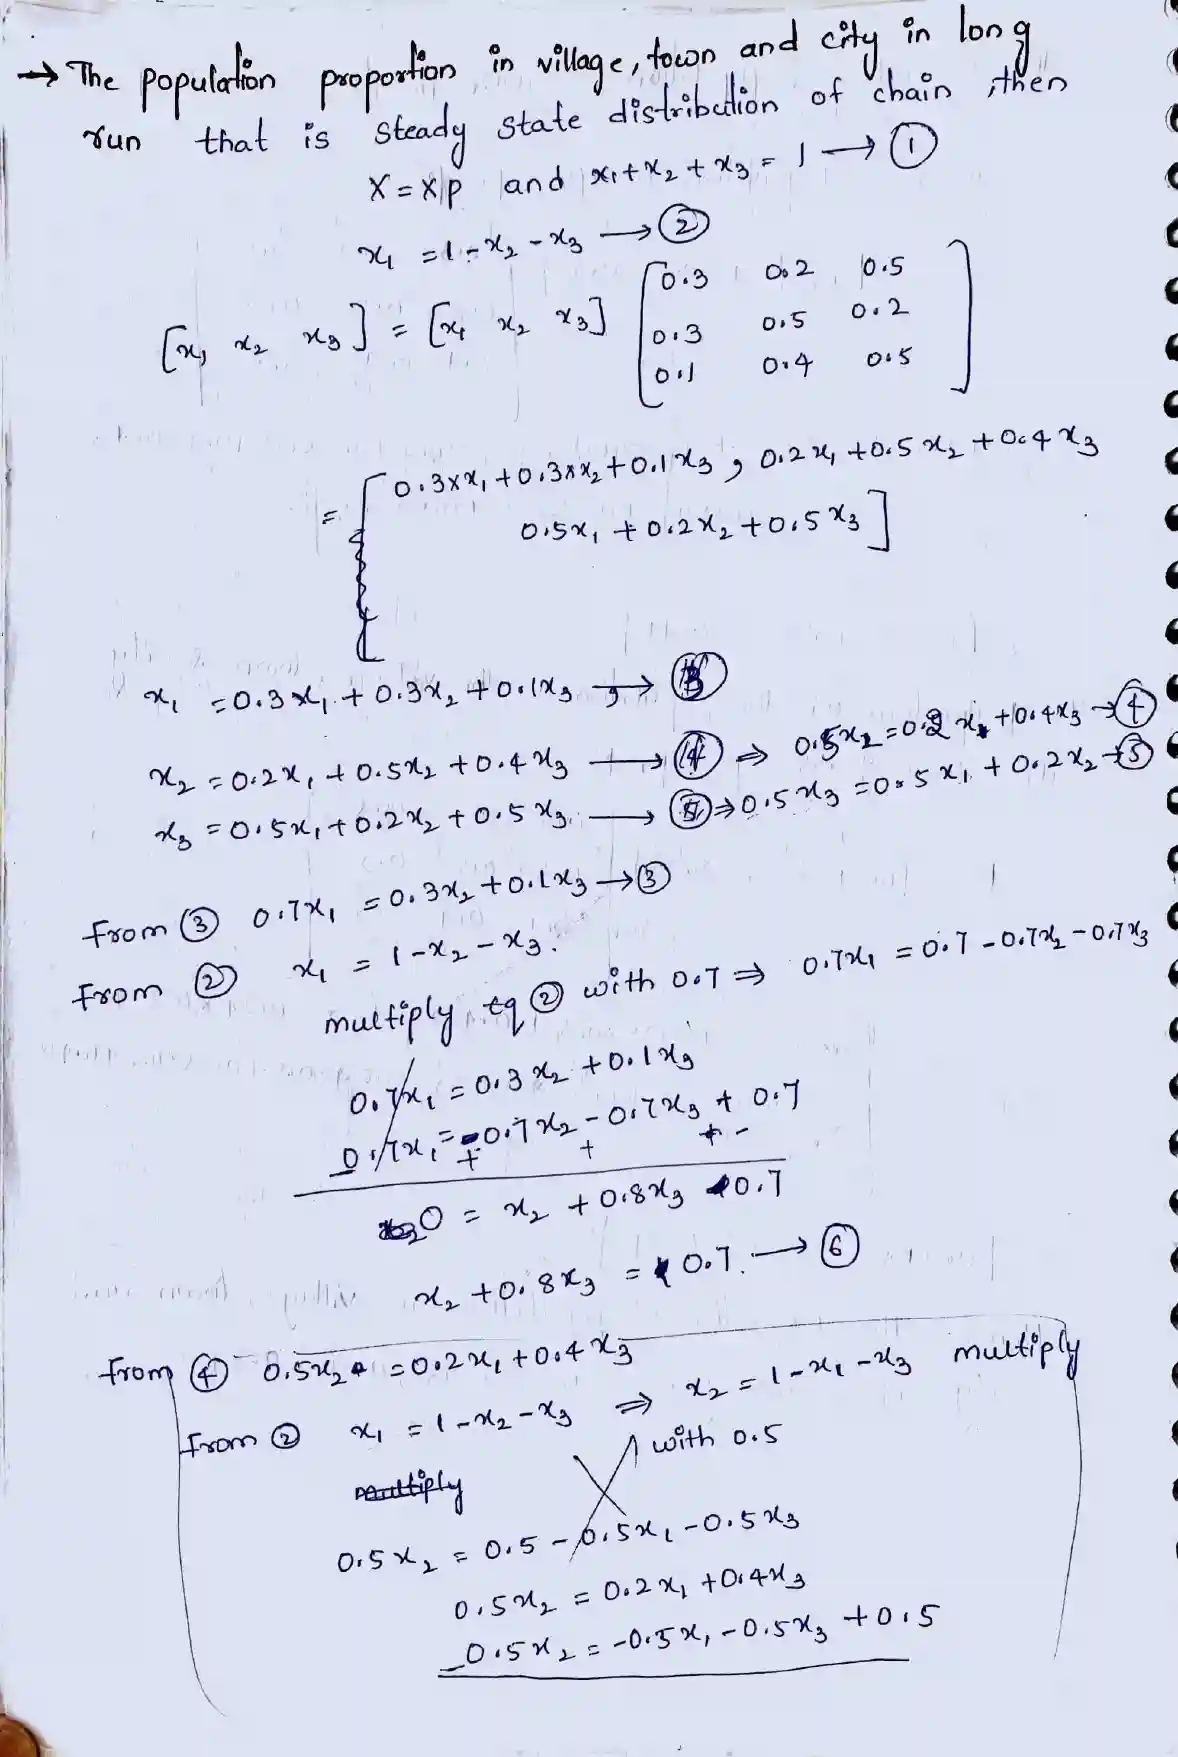 → The population proportion in village, town and city in long
run that is steady state distribution of chain, then
X = XP and x₁+x₂+x₃ = 1 → ①
x₁ = 1-x₂-x₃ → ②
[x₁ x₂ x₃] = [x₁ x₂ x₃] [0.3 0.2 0.5
0.3 0.5 0.2
0.1 0.4 0.5]
= [0.3×x₁+0.3×x₂+0.1x₃, 0.2x₁+0.5x₂+0.4x₃
0.5x₁+0.2x₂+0.5x₃]
x₁ = 0.3x₁+0.3x₂+0.1x₃ → ③
x₂ = 0.2x₁+0.5x₂+0.4x₃ → ④ ⇒ 0.5x₂ = 0.2x₁+0.4x₃ → ④
x₃ = 0.5x₁+0.2x₂+0.5x₃ → ⑤ ⇒ 0.5x₃ = 0.5x₁+0.2x₂ → ⑤
from ③ 0.7x₁ = 0.3x₂+0.1x₃ → ③
From ② x₁ = 1-x₂-x₃.
multiply eq ② with 0.7 ⇒ 0.7x₁ = 0.7-0.7x₂-0.7x₃
0.7x₁ = 0.3x₂+0.1x₃
0.7x₁ = -0.7x₂-0.7x₃+0.7
+ + -
0 = x₂+0.8x₃ -0.7
x₂+0.8x₃ = 0.7 → ⑥
from ④ 0.5x₂ = 0.2x₁+0.4x₃
from ② x₁ = 1-x₂-x₃ ⇒ x₂ = 1-x₁-x₃ multiply
multiply with 0.5
0.5x₂ = 0.5-0.5x₁-0.5x₃
0.5x₂ = 0.2x₁+0.4x₃
0.5x₂ = -0.5x₁-0.5x₃+0.5